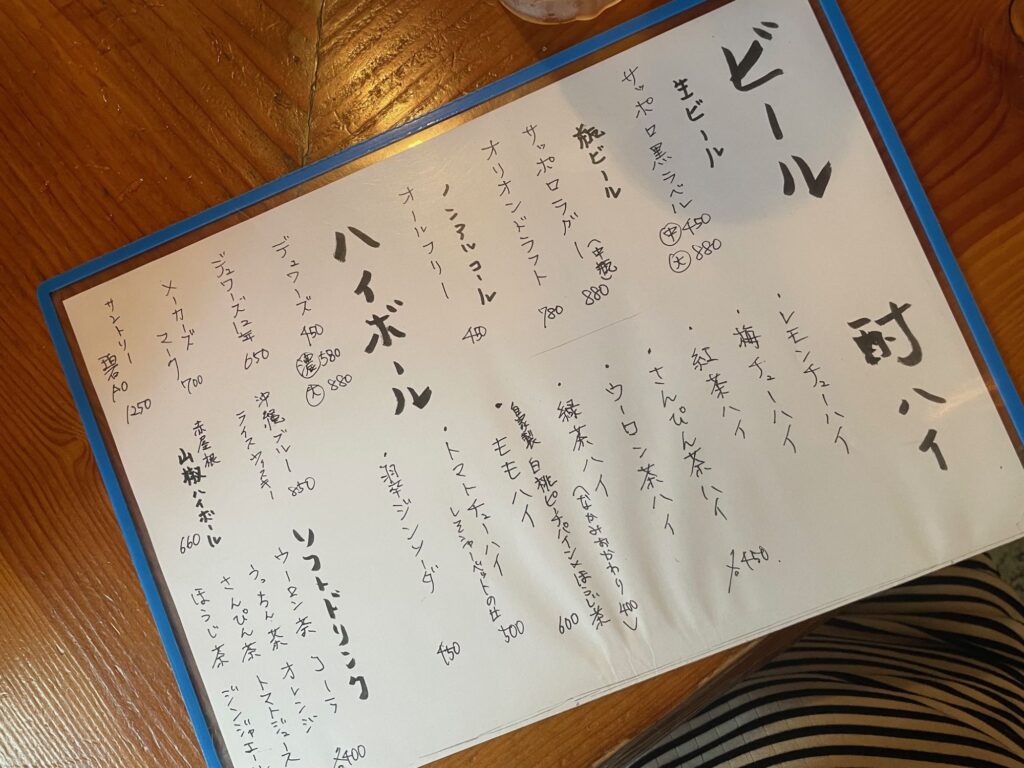 ビール
生ビール
サッポロ黒ラベル ㊥450
㊅880
瓶ビール
サッポロラガー (中瓶) 880
オリオンドラフト 780
ノンアルコール
オールフリー 450
ハイボール
デュワーズ 450
㊅880
デュワーズ12年 650
メーカーズ
マーク 700
サントリー
碧Ao 1250
沖縄ブルー
ライスウィスキー 850
赤屋根
山椒ハイボール 660
酎ハイ
・レモンチューハイ
・梅チューハイ
・紅茶ハイ
・さんぴん茶ハイ
・ウーロン茶ハイ
・緑茶ハイ
(なかみおかわり 400)
⁒450
・自家製 白桃ピーチパイン×ほうじ茶
ももハイ 600
・トマトチューハイ
500
・泡辛ジンソーダ 450
ソフトドリンク
ウーロン茶 コーラ
うっちん茶 オレンジ
さんぴん茶 トマトジュース
ほうじ茶 ジンジャエー
⁒400